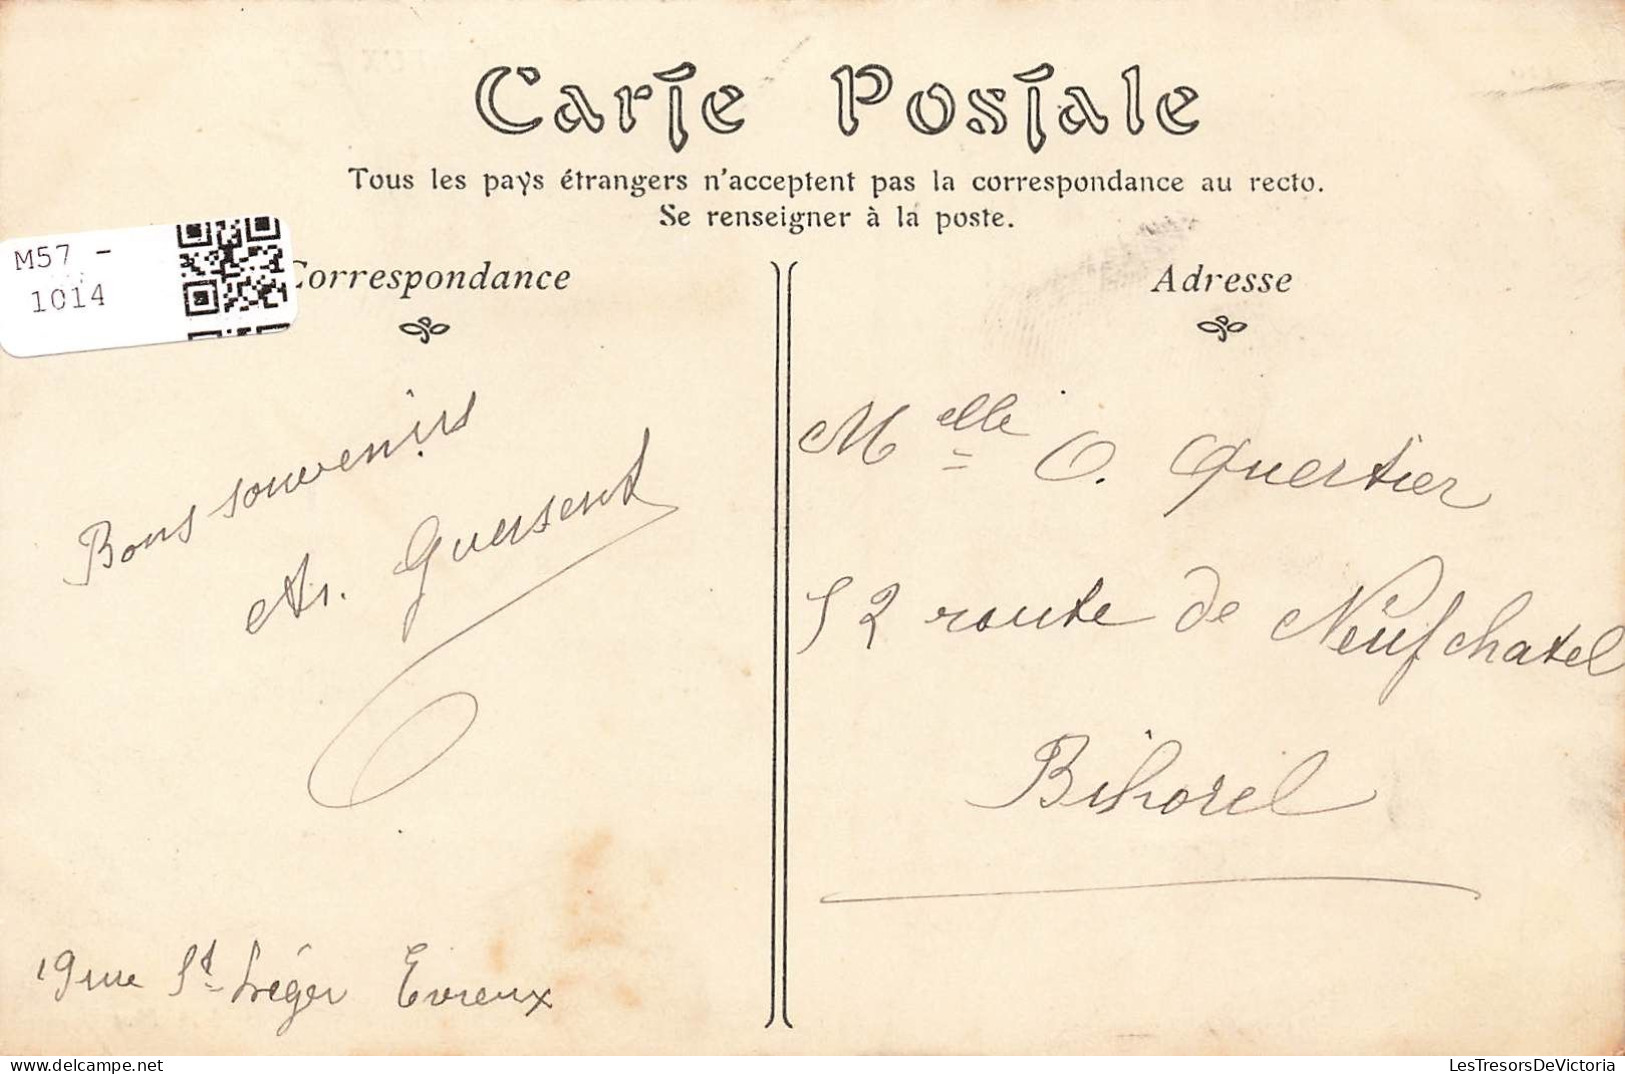 Carte Postale
Tous les pays étrangers n'acceptent pas la correspondance au recto.
Se renseigner à la poste.
M57 -
1014
Correspondance
Adresse
Bons souvenirs
Guersent
19 rue St Léger Evreux
Melle O. Quertier
52 route de Neufchatel
Bihorel
LesTresorsDeVictoria